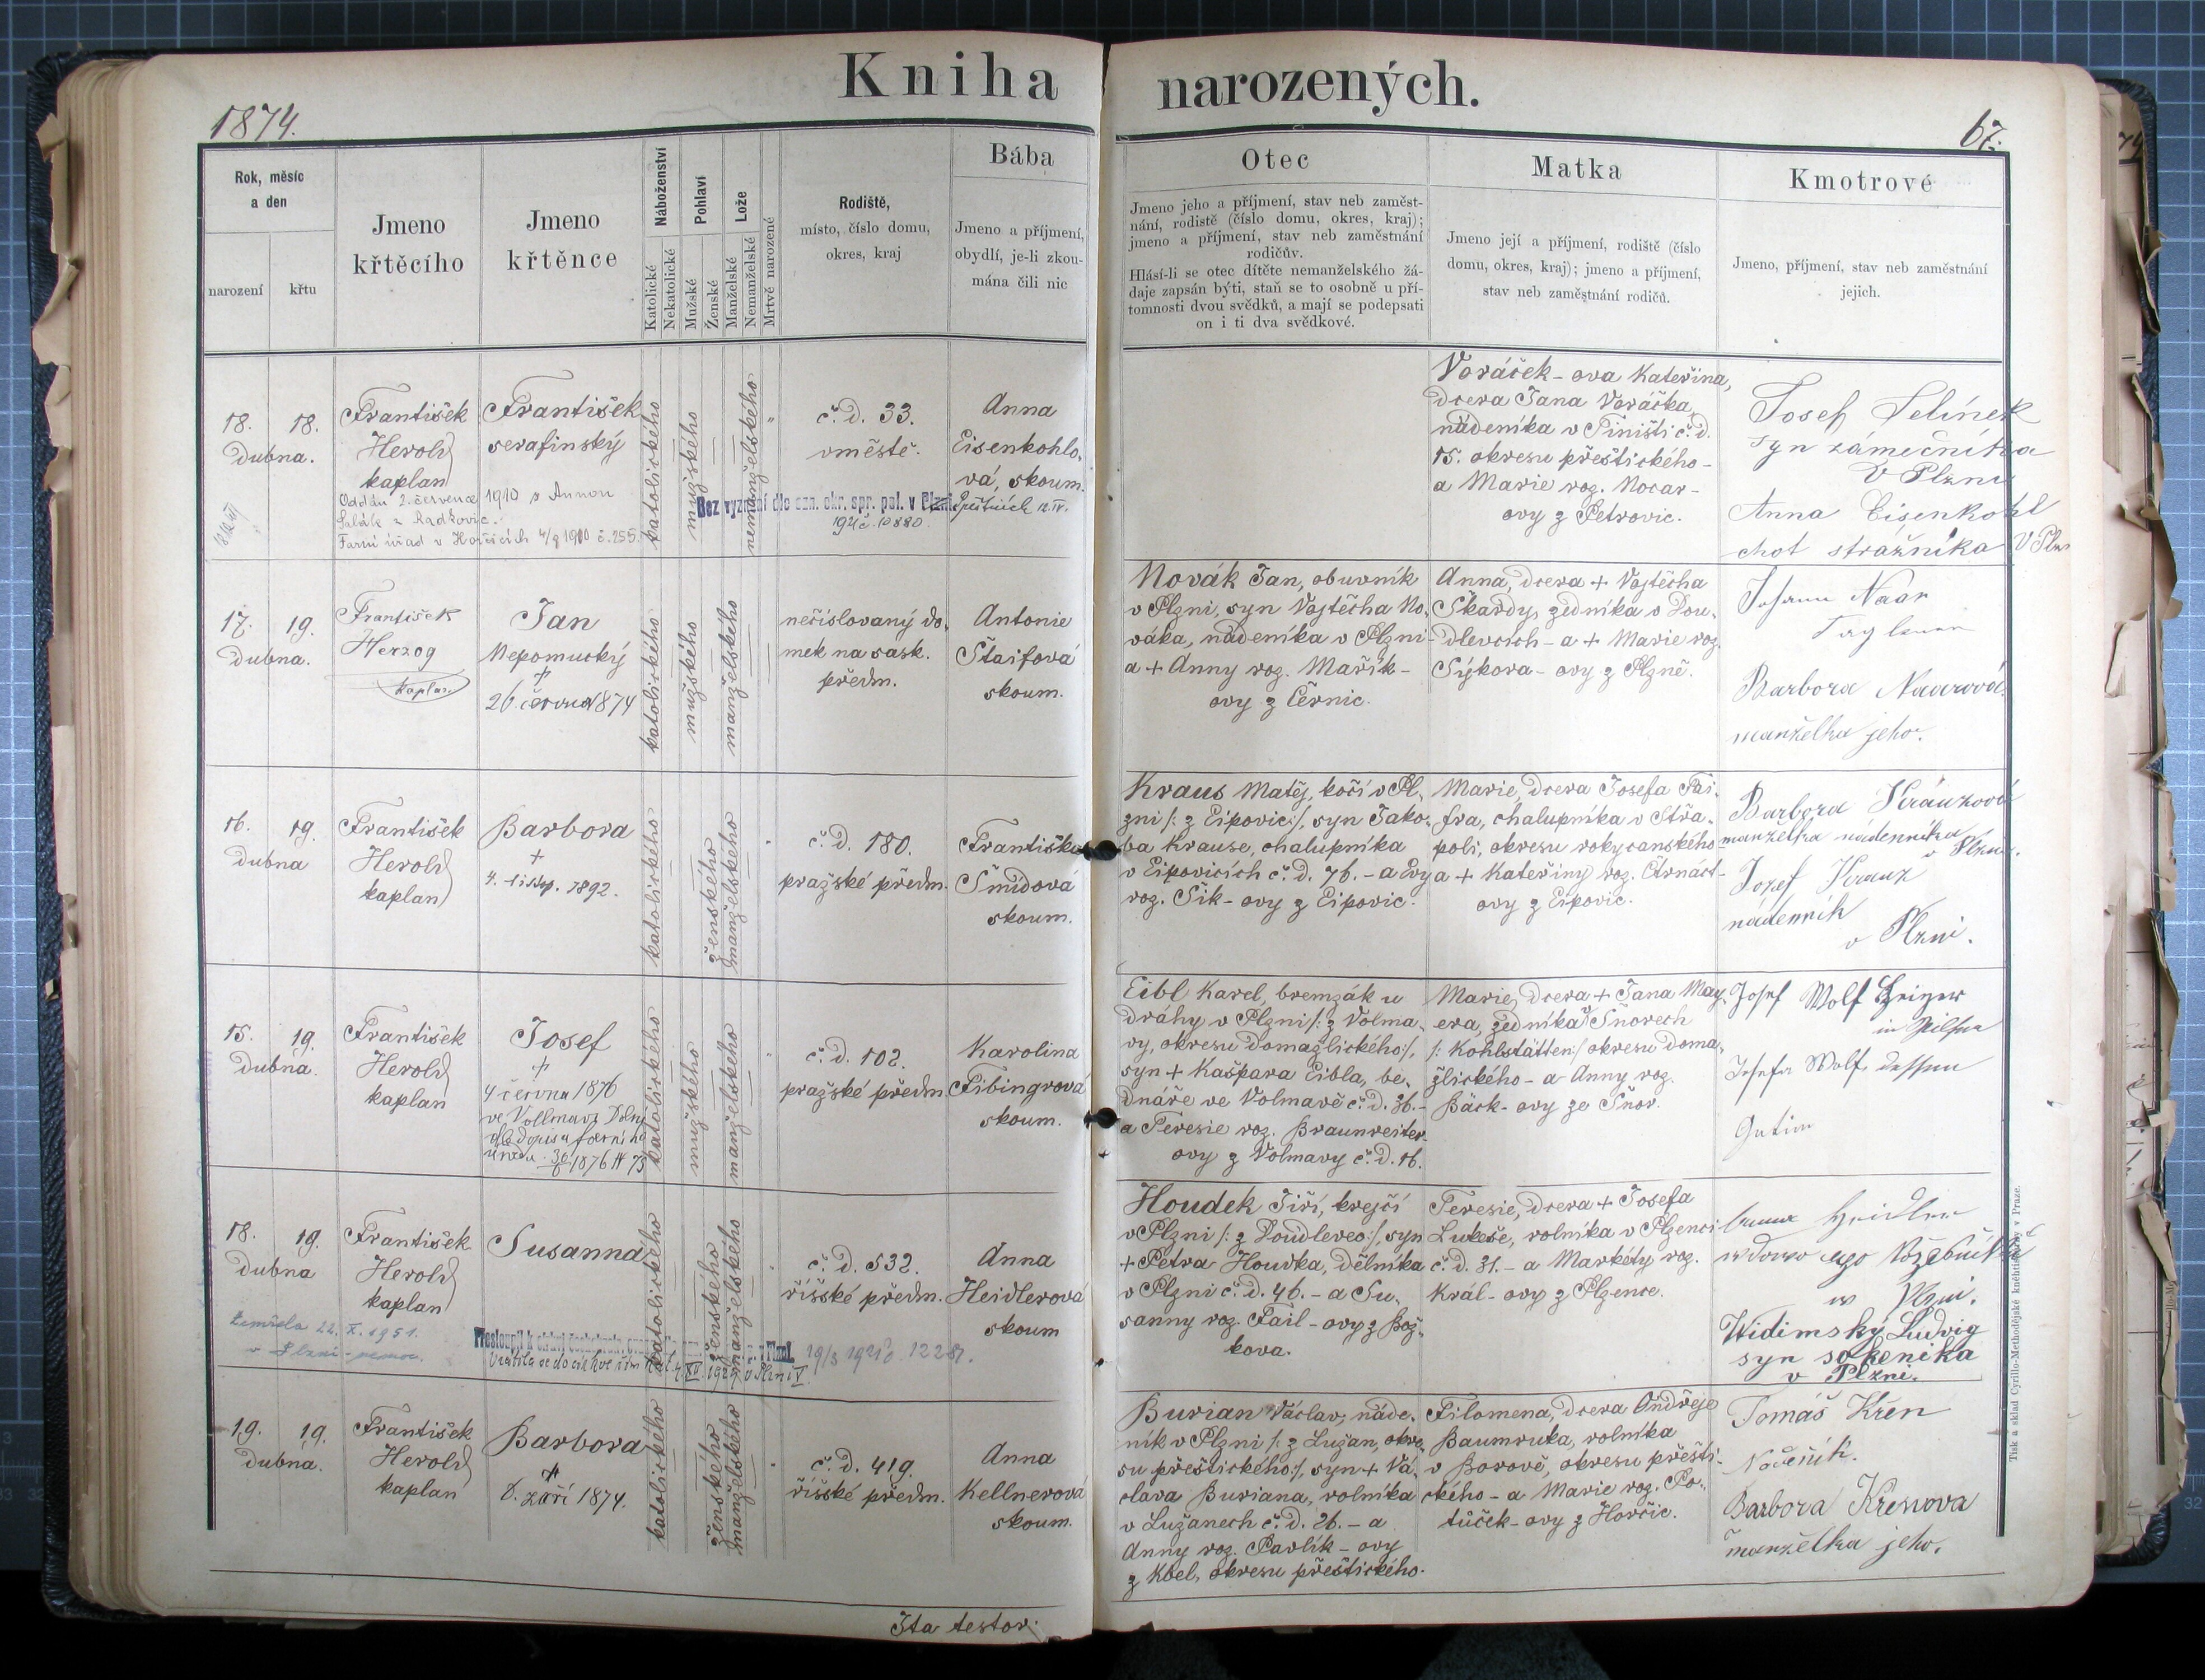 Kniha narozených.
1874.
67.
Rok, měsíc
a den
narození
křtu
Jmeno
křtěcího
Jmeno
křtěnce
Náboženství
Katolické
Nekatolické
Pohlaví
Mužské
Ženské
Lože
Manželské
Nemanželské
Mrtvě narozené
Rodiště,
místo, číslo domu,
okres, kraj
Bába
Jmeno a příjmení,
obydlí, je-li zkou-
mána čili nic
Otec
Jmeno jeho a příjmení, stav neb zaměst-
nání, rodistě (číslo domu, okres, kraj);
jmeno a příjmení, stav neb zaměstnání
rodičův.
Hlásí-li se otec dítěte nemanželského žá-
daje zapsán býti, staň se to osobně u pří-
tomnosti dvou svědků, a mají se podepsati
on i ti dva svědkové.
Matka
Jmeno její a příjmení, rodiště (číslo
domu, okres, kraj); jmeno a příjmení,
stav neb zaměstnání rodičů.
Kmotrové
Jmeno, příjmení, stav neb zaměstnání
jejich.
18. 18.
dubna.
František
Herold
kaplan
Oddán 2. července 1910 s Annou
Farní úřad v Horšicích 4/9 1910 č. 255.
František
serafinský
katolického
mužského
nemanželského
č. d. 33.
v městě.
Bez vyznání dle ozn. okr. spr. pol. v Plzni
Anna
Eisenkohlo-
vá, skoum.
Voráček-ova Kateřina,
dcera Jana Voráčka,
nádeníka v Píništi č. d.
15. okresu přeštického-
a Marie roz. Mocar-
ovy z Petrovic.
Josef Selínek
syn zámečníka
v Plzni
Anna Eisenkohl
chot strážníka v Plzni
17. 19.
dubna.
František
Herzog
kaplan
Jan
Nepomucký
+
26. června 1874
katolického
mužského
manželského
nečíslovaný do-
mek na sask.
předm.
Antonie
Štaifová
skoum.
Novák Jan, obuvník
v Plzni, syn Vojtěcha No-
váka, nádeníka v Plzni-
a + Anny roz. Mařík-
ovy z Černic.
Anna, dcera + Vojtěcha
Škardy, zedníka v Dou-
dlevcích - a + Marie roz.
Sýkora-ovy z Plzně.
Johann Naar
Barbora Naarová
manželka jeho.
16. 19.
dubna
František
Herold
kaplan
Barbora
+
4. listop. 1892.
katolického
ženského
manželského
č. d. 180.
pražské předm.
Františka
Šmídová
skoum.
Kraus Matěj, kočí v Pl-
zni /: z Ejpovic :/, syn Jako-
ba Krause, chalupníka
v Ejpovicích č. d. 76. - a Evy
roz. Šik-ovy z Ejpovic.
Marie, dcera Josefa Pai-
fra, chalupníka v Střa-
poli, okresu rokycanského-
a + Kateřiny roz. Čtrnáct-
ovy z Ejpovic.
Barbora Krauzová
manzelka nádenníka v Plzni.
Jozef Krauz
nádenník
v Plzni.
15. 19.
dubna.
František
Herold
kaplan
Josef
+
4 června 1876
katolického
mužského
manželského
č. d. 102.
pražské předm.
Karolina
Fibingrová
skoum.
Eibl Karel, bremzák u
dráhy v Plzni /: z Volma-
vy, okresu domažlického :/,
syn + Kašpara Eibla, be-
dnáře ve Volmavě č. d. 36.-
a Teresie roz. Braunreiter-
ovy z Volmavy č. d. 16.
Marie, dcera + Jana May-
era, zedníka v Šnorech
/: Kohlstätten :/ okresu doma-
žlického - a Anny roz.
Bäck-ovy ze Šnor.
Josef Wolf
in Pilsen
Josefa Wolf dessen
Gattin
18. 19.
dubna
František
Herold
kaplan
Zemřela 22. X. 1951.
v Plzni
Susanna
katolického
ženského
manželského
č. d. 532.
říšské předm.
Anna
Heidlerová
skoum
Houdek Jiří, krejčí
v Plzni /: z Doudlevec :/, syn
+ Petra Houdka, dělníka
v Plzni č. d. 46. - a Su-
sanny roz. Fail-ovy z Bož-
kova.
Teresie, dcera + Josefa
Lukeše, rolníka v Plzenci
č. d. 31. - a Markéty roz.
Král-ovy z Plzence.
v Plzni.
Widimský Ludvig
syn soukeníka
v Plzni.
19. 19.
dubna.
František
Herold
kaplan
Barbora
+
8. září 1874.
katolického
ženského
manželského
č. d. 419.
říšské předm.
Anna
Kellnerová
skoum.
Burian Václav, náde-
ník v Plzni /: z Lužan, okre-
su přeštického :/, syn + Vá-
clava Buriana, rolníka
v Lužanech č. d. 26. - a
Anny roz. Pavlík-ovy
z Kbel, okresu přeštického.
Filomena, dcera Ondřeje
Baumruka, rolníka
v Borově, okresu přešti-
ckého - a Marie roz. Po-
tůček-ovy z Horšic.
Tomáš Křen
Barbora Křenova
manželka jeho.
Ita testor:
Tisk a sklad Cyrillo-Methodějské kněhtiskárny v Praze.